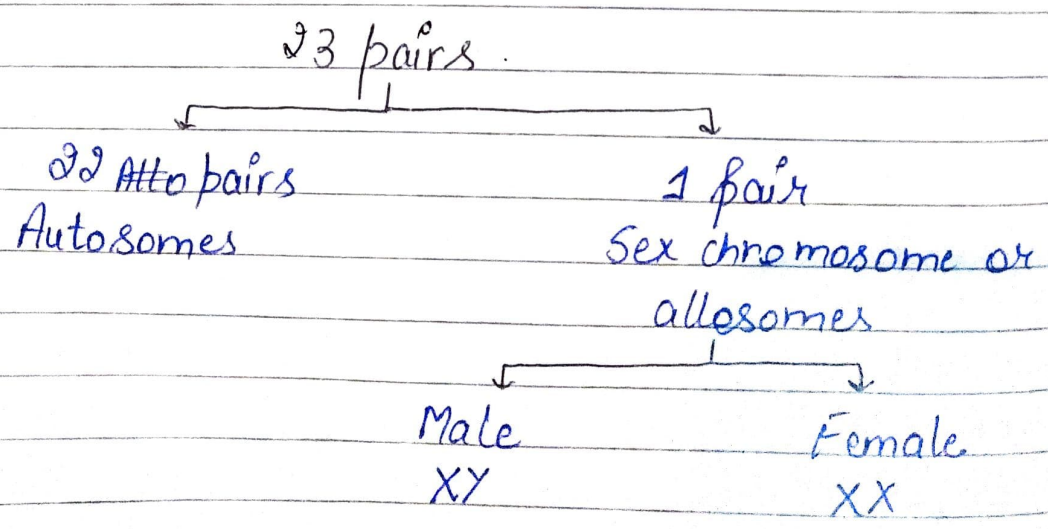 23 pairs.
22 Atto pairs
Autosomes
1 pair
Sex chromosome or
allosomes
Male
XY
Female
XX